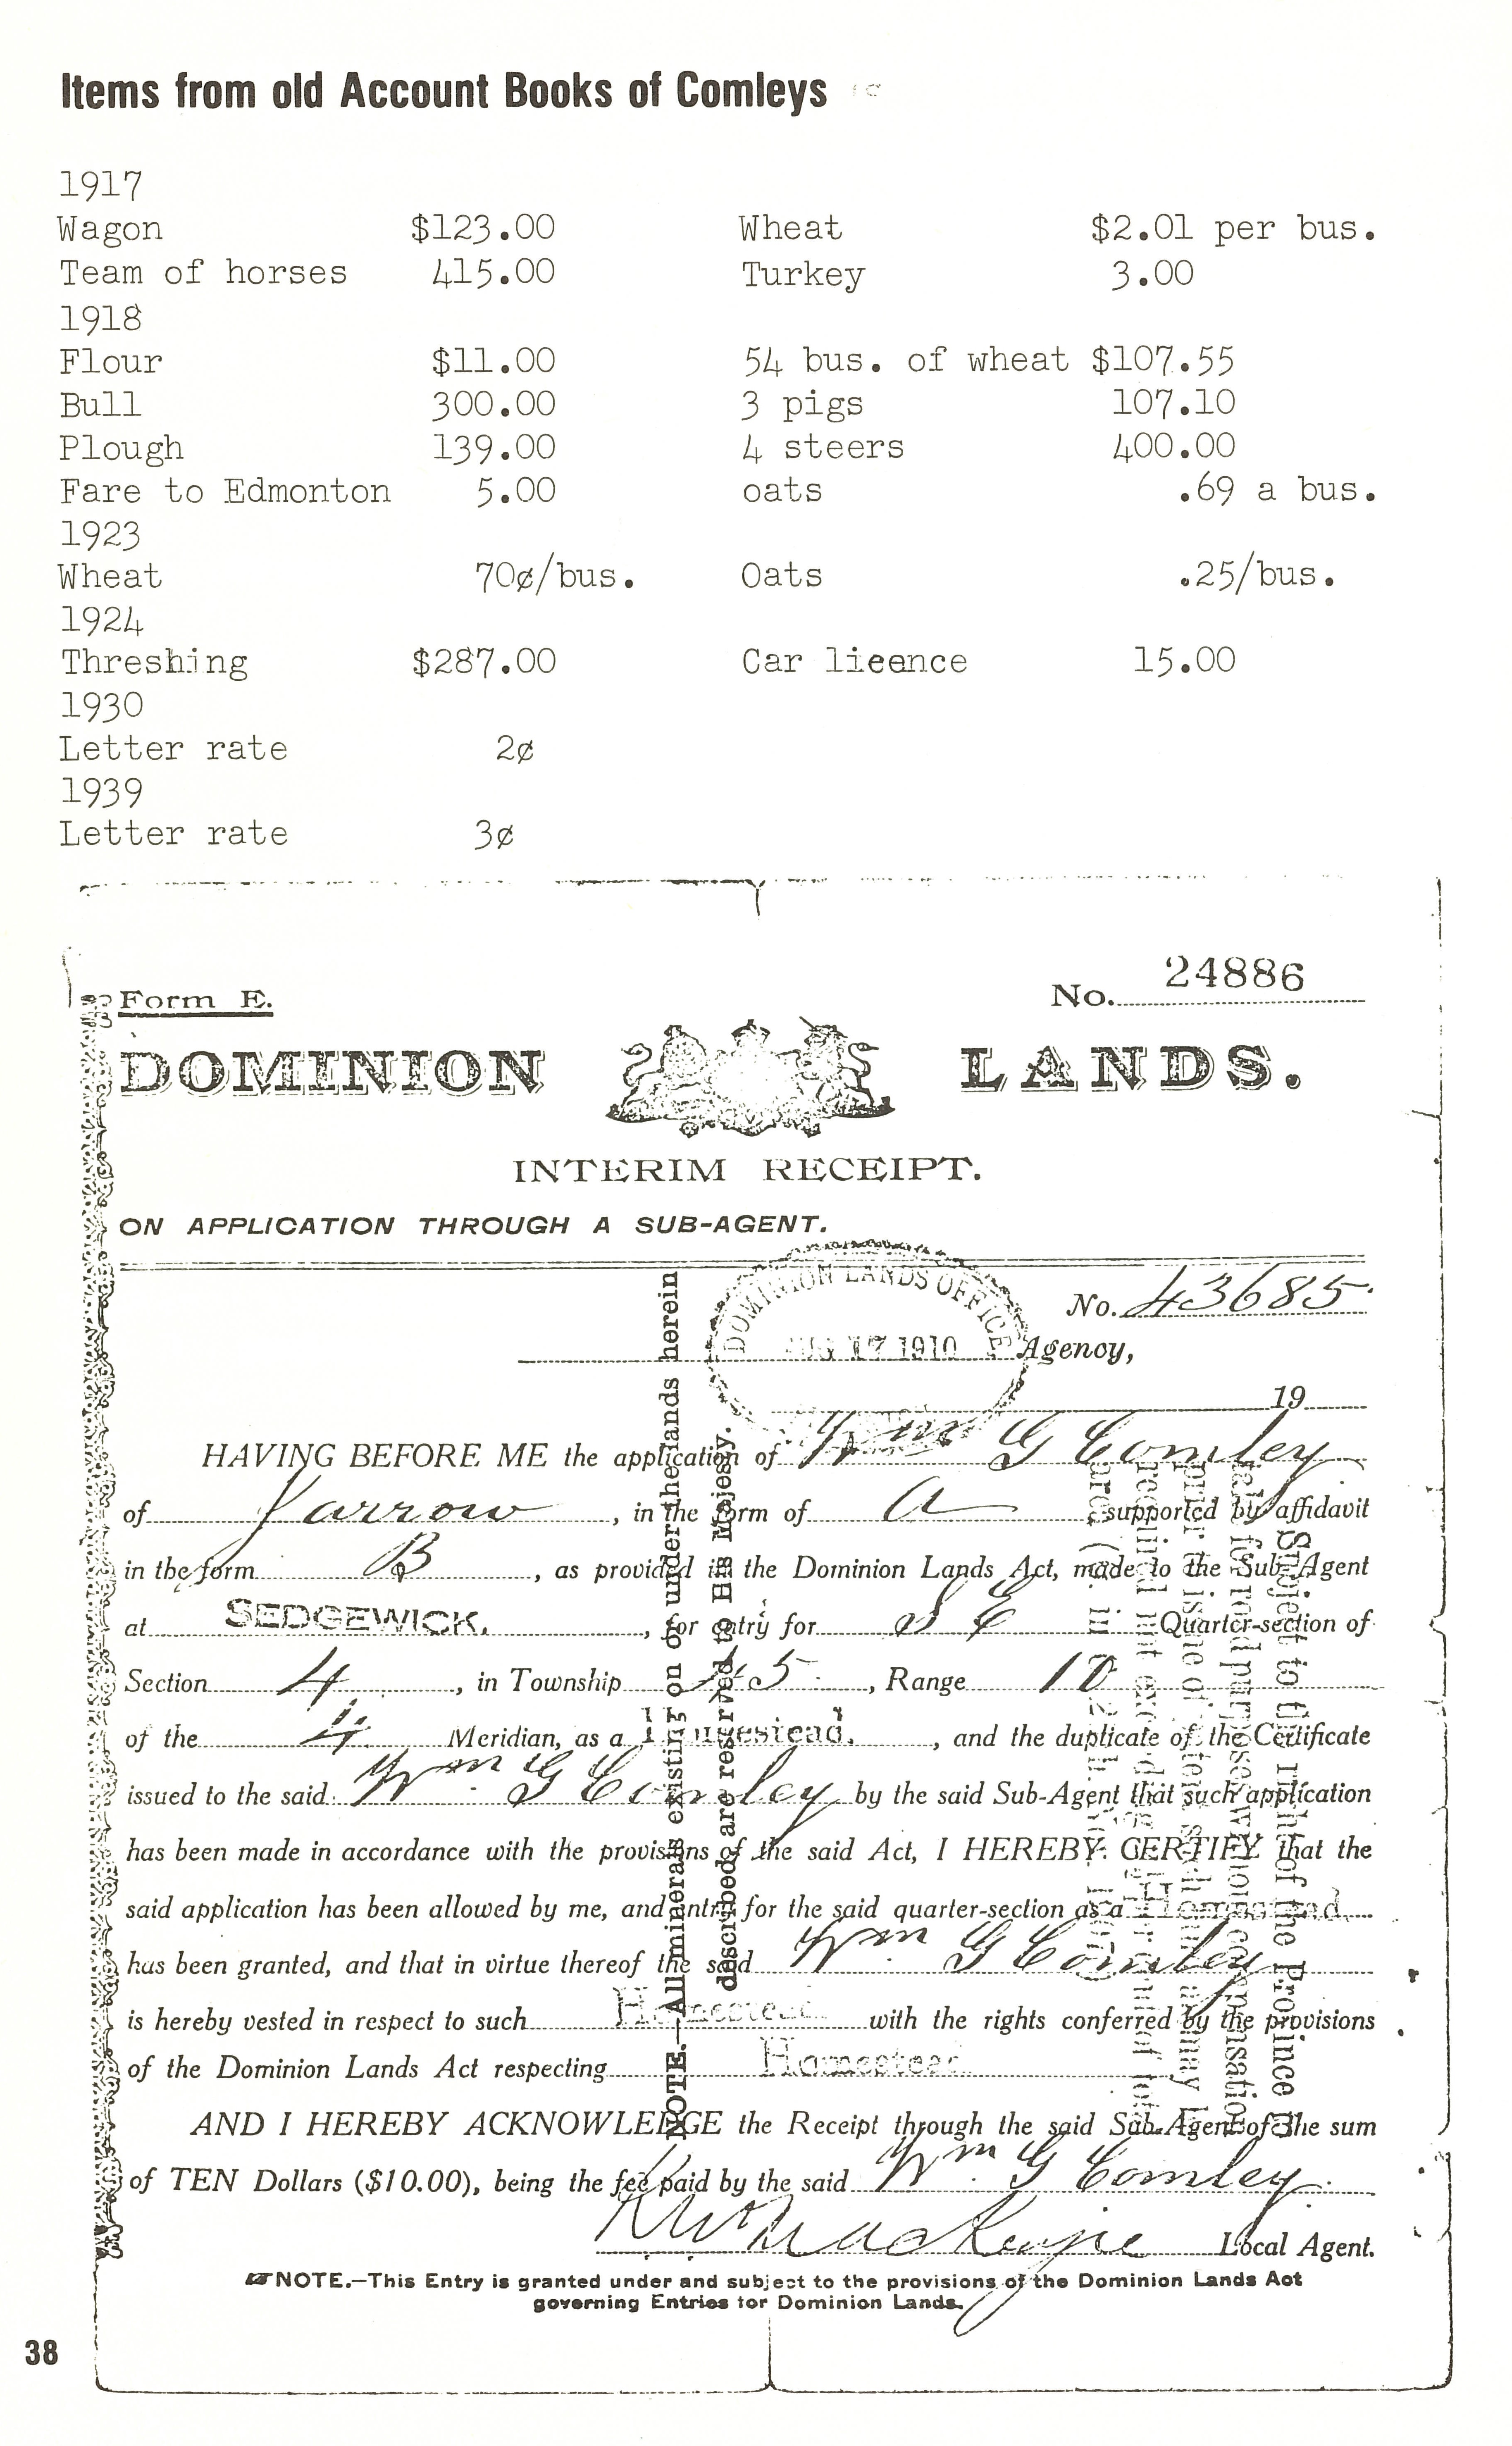 Items from old Account Books of Comleys
1917
Wagon $123.00 Wheat $2.01 per bus.
Team of horses 415.00 Turkey 3.00
1918
Flour $11.00 54 bus. of wheat $107.55
Bull 300.00 3 pigs 107.10
Plough 139.00 4 steers 400.00
Fare to Edmonton 5.00 oats .69 a bus.
1923
Wheat 70¢/bus. Oats .25/bus.
1924
Threshing $287.00 Car lieence 15.00
1930
Letter rate 2¢
1939
Letter rate 3¢
Form E. No. 24886
DOMINION LANDS.
INTERIM RECEIPT.
ON APPLICATION THROUGH A SUB-AGENT.
DOMINION LANDS OFFICE
No. 43685
17 1910 Agency,
19
HAVING BEFORE ME the application of Wm G Comley
of Jarrow, in the form of A supported by affidavit
in the form B, as provided in the Dominion Lands Act, made to the Sub-Agent
at SEDGEWICK, for entry for S E Quarter-section of
Section 4, in Township 45, Range 10
of the 4 Meridian, as a Homestead, and the duplicate of the Certificate
issued to the said Wm G Comley by the said Sub-Agent that such application
has been made in accordance with the provisions of the said Act, I HEREBY CERTIFY that the
said application has been allowed by me, and entry for the said quarter-section as a Homestead
has been granted, and that in virtue thereof the said Wm G Comley
is hereby vested in respect to such Homestead with the rights conferred by the provisions
of the Dominion Lands Act respecting Homestead
AND I HEREBY ACKNOWLEDGE the Receipt through the said Sub-Agent of the sum
of TEN Dollars ($10.00), being the fee paid by the said Wm G Comley
MacKenzie Local Agent.
NOTE.—This Entry is granted under and subject to the provisions of the Dominion Lands Act
governing Entries for Dominion Lands.
NOTE.—All minerals existing on or under the lands herein
described, are reserved to His Majesty.
Subject to the right of the Province
38